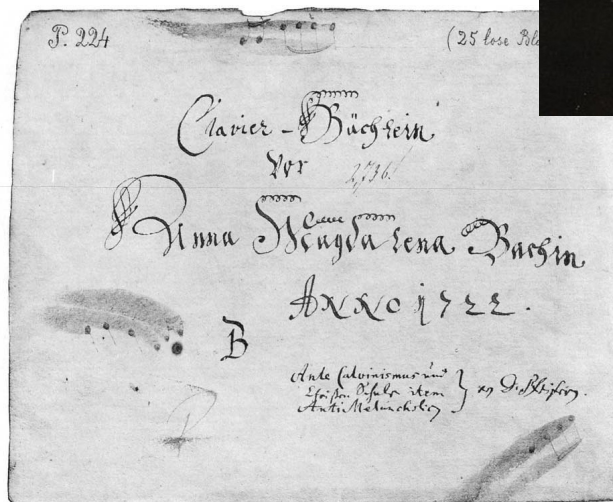 P. 224
(25 lose
Clavier-Büchlein
vor
2736.
Anna Magdalena Bachin
ANNO 1722.
B
Ante Calvinismus und
Christen Schule item
AntiMelancholicus